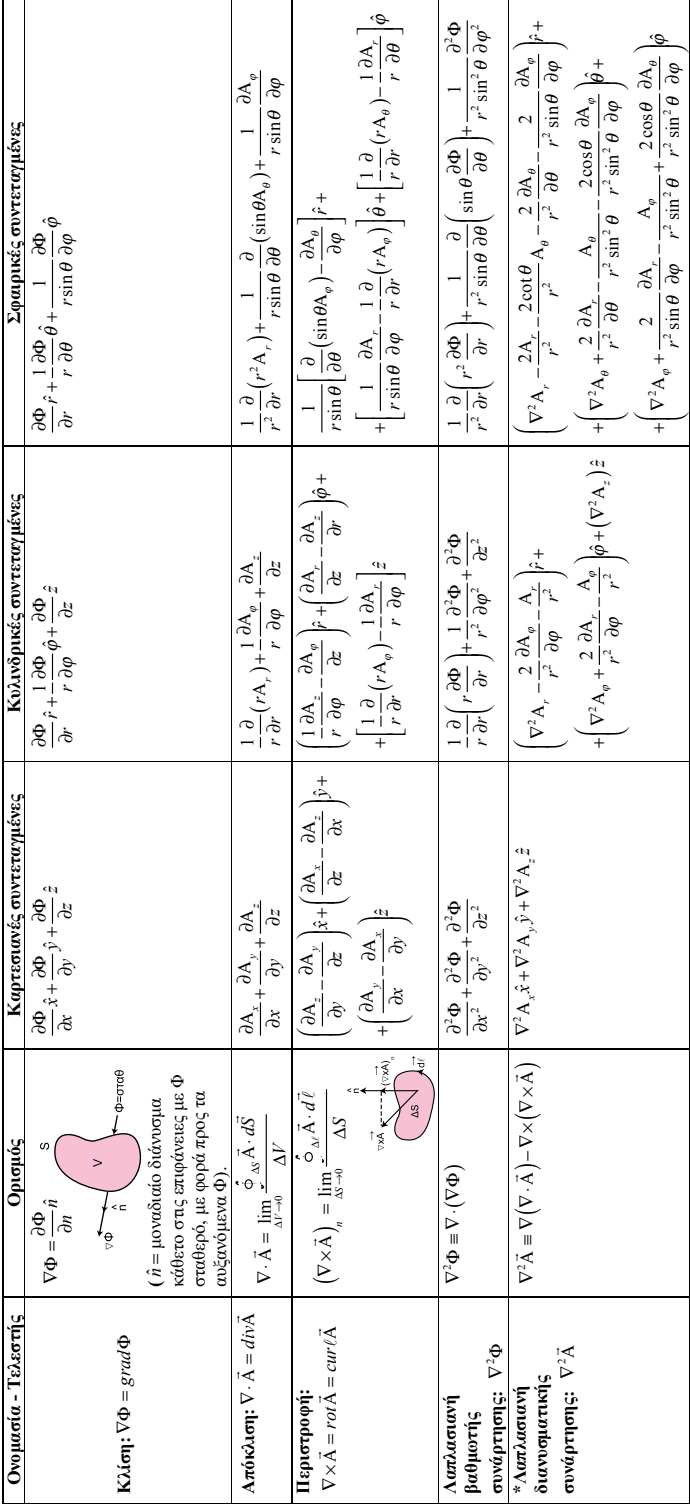 Ονομασία - Τελεστής
Ορισμός
Καρτεσιανές συντεταγμένες
Κυλινδρικές συντεταγμένες
Σφαιρικές συντεταγμένες
Κλίση: ∇Φ = gradΦ
∇Φ = ∂Φ/∂n n̂
S
V
Φ=σταθ
n̂
∇Φ
( n̂ = μοναδιαίο διάνυσμα
κάθετο στις επιφάνειες με Φ
σταθερό, με φορά προς τα
αυξανόμενα Φ).
∂Φ/∂x x̂ + ∂Φ/∂y ŷ + ∂Φ/∂z ẑ
∂Φ/∂r r̂ + 1/r ∂Φ/∂φ φ̂ + ∂Φ/∂z ẑ
∂Φ/∂r r̂ + 1/r ∂Φ/∂θ θ̂ + 1/(r sinθ) ∂Φ/∂φ φ̂
Απόκλιση: ∇·A⃗ = divA⃗
∇·A⃗ = lim ΔV→0 ∮ΔS A⃗·dS⃗ / ΔV
∂Ax/∂x + ∂Ay/∂y + ∂Az/∂z
1/r ∂/∂r (rAr) + 1/r ∂Aφ/∂φ + ∂Az/∂z
1/r² ∂/∂r (r²Ar) + 1/(r sinθ) ∂/∂θ (sinθAθ) + 1/(r sinθ) ∂Aφ/∂φ
Περιστροφή:
∇×A⃗ = rotA⃗ = curℓA⃗
(∇×A⃗)n = lim ΔS→0 ∮Δℓ A⃗·dℓ⃗ / ΔS
n̂
∇xA⃗
(∇xA⃗)n
ΔS
dℓ⃗
(∂Az/∂y − ∂Ay/∂z) x̂ + (∂Ax/∂z − ∂Az/∂x) ŷ +
+ (∂Ay/∂x − ∂Ax/∂y) ẑ
(1/r ∂Az/∂φ − ∂Aφ/∂z) r̂ + (∂Ar/∂z − ∂Az/∂r) φ̂ +
+ [1/r ∂/∂r (rAφ) − 1/r ∂Ar/∂φ] ẑ
1/(r sinθ) [∂/∂θ (sinθAφ) − ∂Aθ/∂φ] r̂ +
+ [1/(r sinθ) ∂Ar/∂φ − 1/r ∂/∂r (rAφ)] θ̂ + [1/r ∂/∂r (rAθ) − 1/r ∂Ar/∂θ] φ̂
Λαπλασιανή
βαθμωτής
συνάρτησης: ∇²Φ
∇²Φ ≡ ∇·(∇Φ)
∂²Φ/∂x² + ∂²Φ/∂y² + ∂²Φ/∂z²
1/r ∂/∂r (r ∂Φ/∂r) + 1/r² ∂²Φ/∂φ² + ∂²Φ/∂z²
1/r² ∂/∂r (r² ∂Φ/∂r) + 1/(r² sinθ) ∂/∂θ (sinθ ∂Φ/∂θ) + 1/(r² sin²θ) ∂²Φ/∂φ²
*Λαπλασιανή
διανυσματικής
συνάρτησης: ∇²A⃗
∇²A⃗ ≡ ∇(∇·A⃗) − ∇×(∇×A⃗)
∇²Ax x̂ + ∇²Ay ŷ + ∇²Az ẑ
(∇²Ar − 2/r² ∂Aφ/∂φ − Ar/r²) r̂ +
+ (∇²Aφ + 2/r² ∂Ar/∂φ − Aφ/r²) φ̂ + (∇²Az) ẑ
(∇²Ar − 2Ar/r² − 2cotθ/r² Aθ − 2/r² ∂Aθ/∂θ − 2/(r² sinθ) ∂Aφ/∂φ) r̂ +
+ (∇²Aθ + 2/r² ∂Ar/∂θ − Aθ/(r² sin²θ) − 2cosθ/(r² sin²θ) ∂Aφ/∂φ) θ̂ +
+ (∇²Aφ + 2/(r² sinθ) ∂Ar/∂φ − Aφ/(r² sin²θ) + 2cosθ/(r² sin²θ) ∂Aθ/∂φ) φ̂